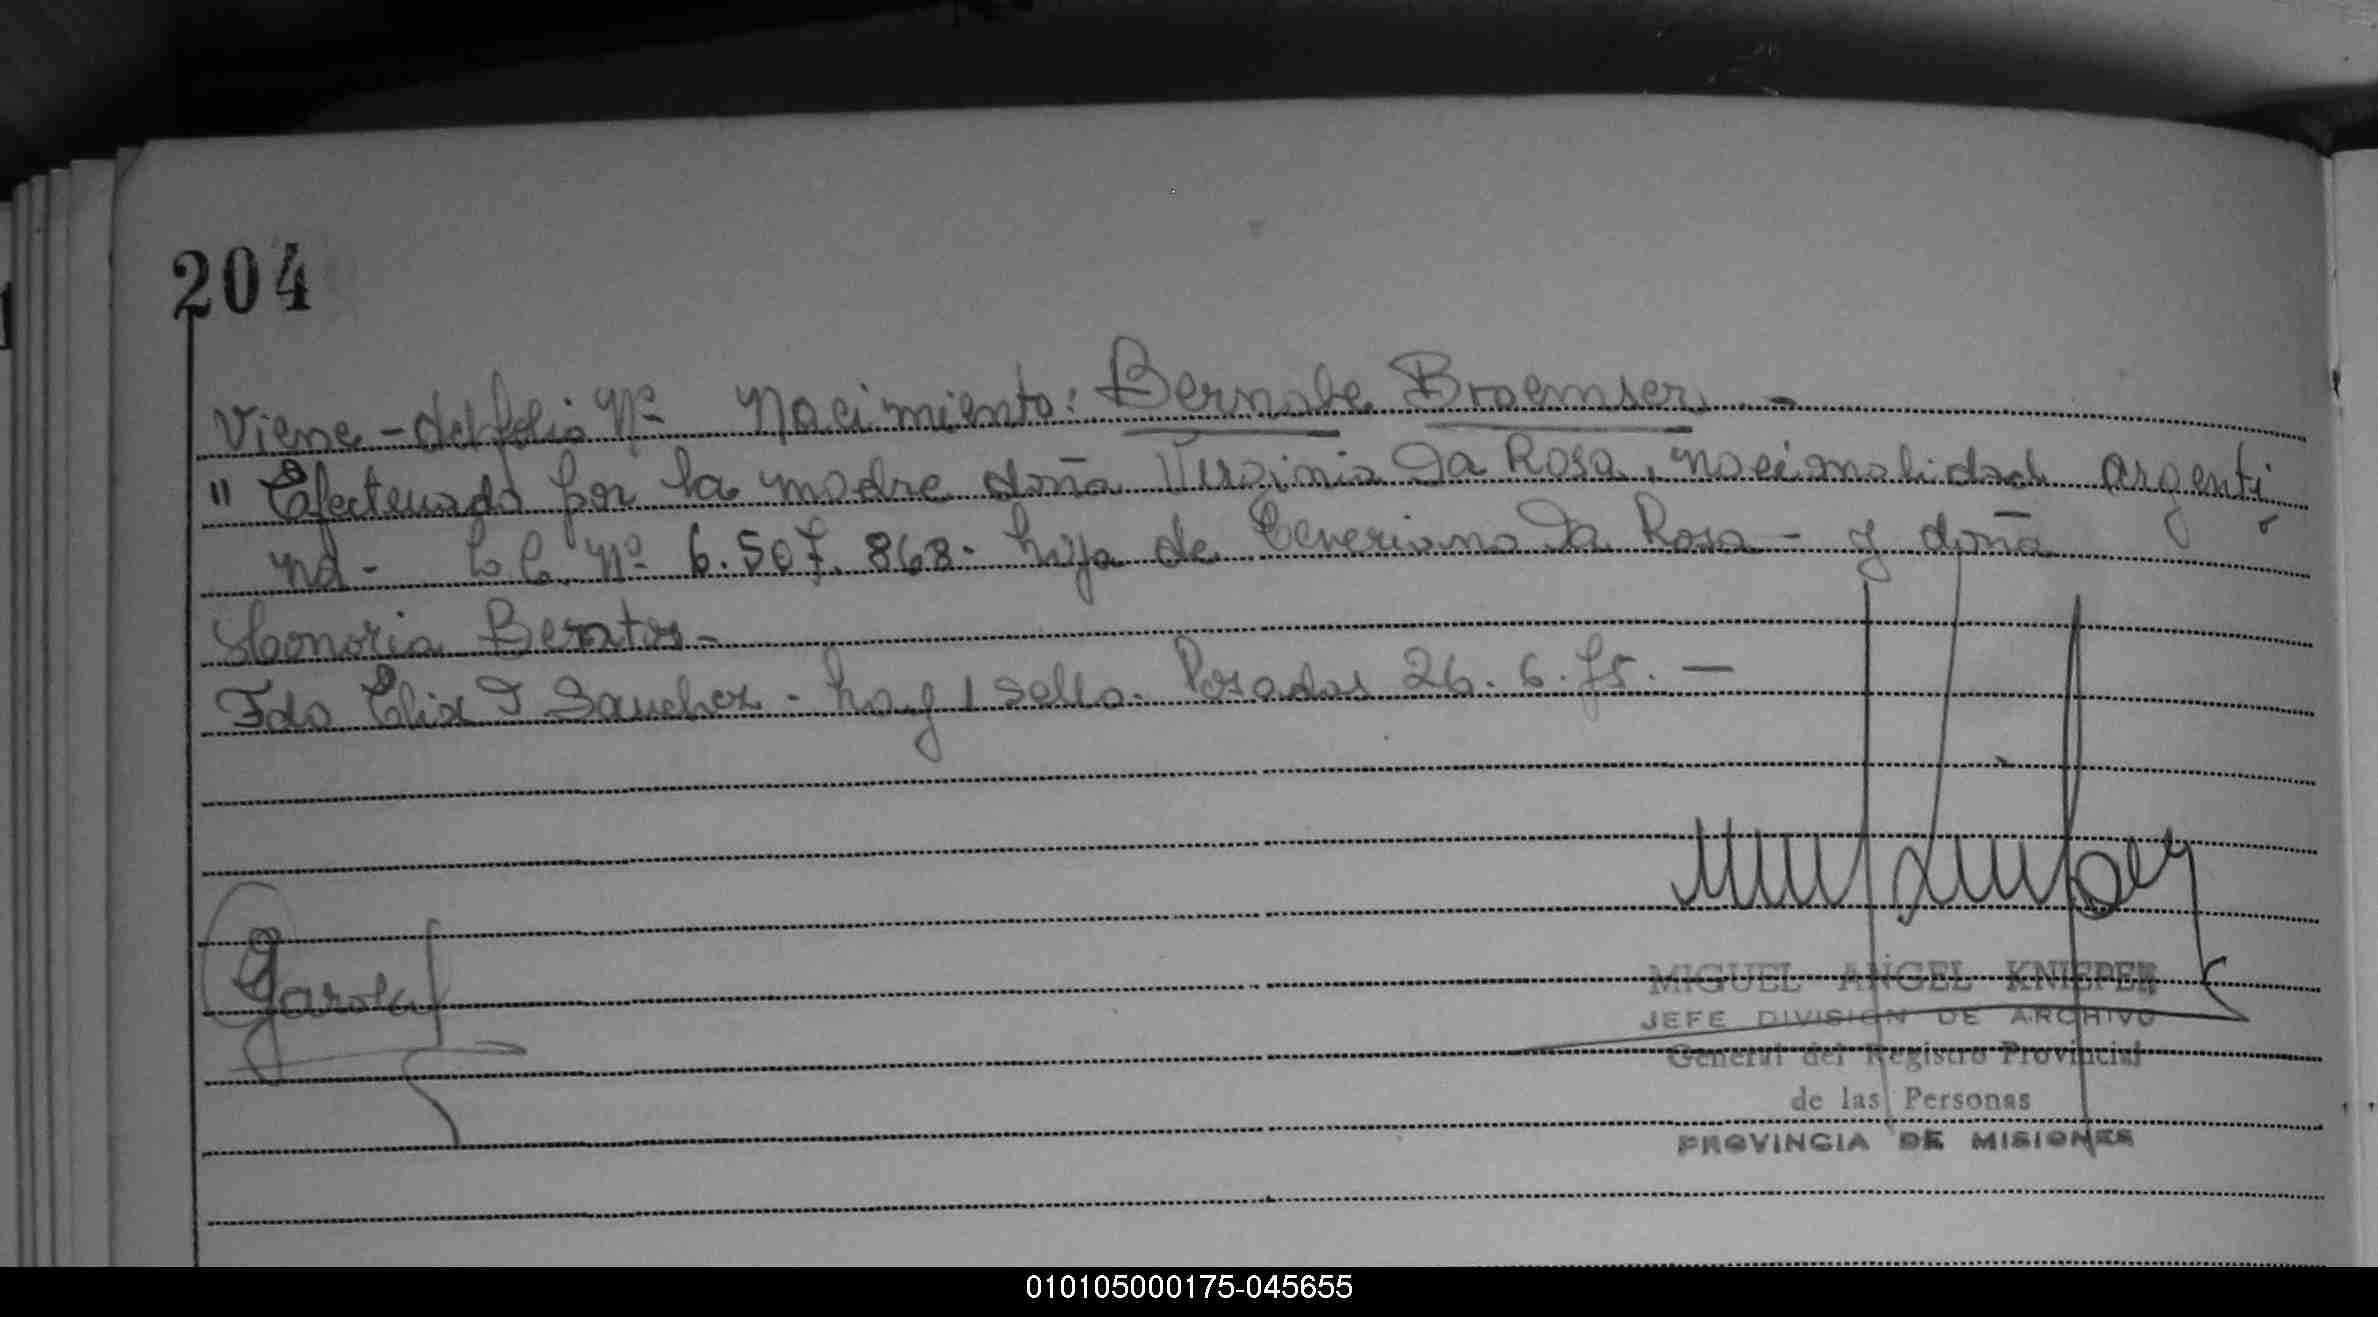 204
Viene - del folio Nº Nacimiento: Bernabe Braemser. -
" Efectuado por la madre doña Virginia Da Rosa, nacionalidad argenti
na - L C. Nº 6.507.868. hija de Ceveriano Da Rosa - y doña
Honoria Berntos -
Fdo Elix T Sanchez - hay 1 sello. Posadas 26. 6. 75. -
MIGUEL ANGEL KNIEPER
JEFE DIVISION DE ARCHIVO
General del Registro Provincial
de las Personas
PROVINCIA DE MISIONES
010105000175-045655